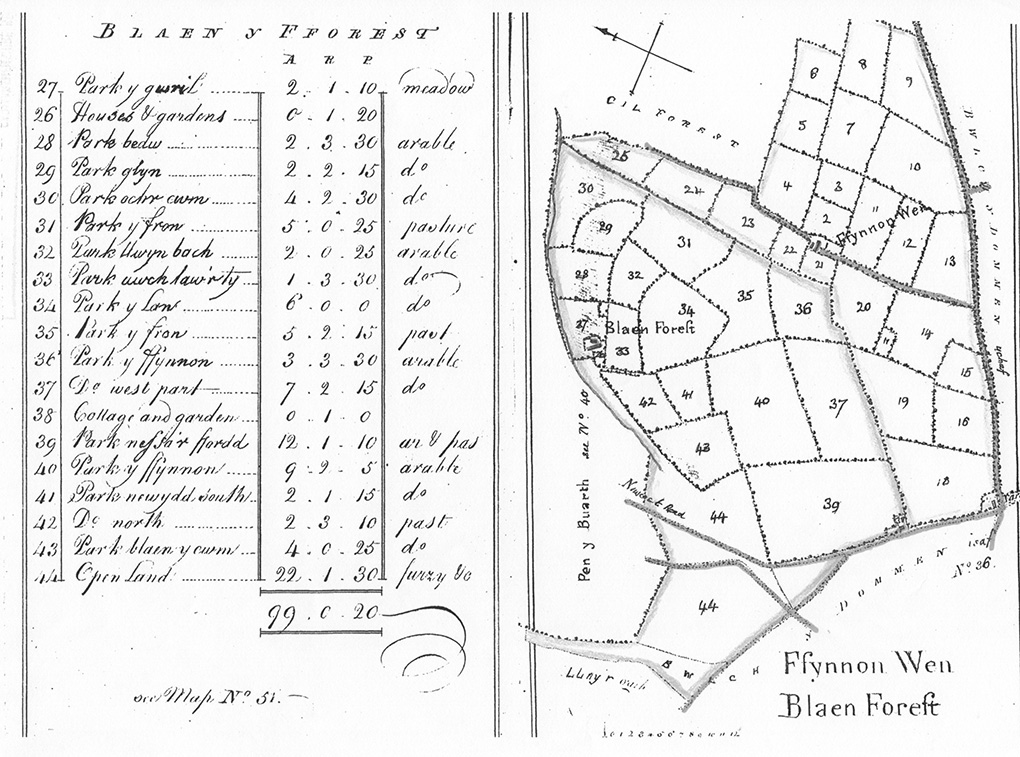 BLAEN Y FFOREST
A R P
27 Park y gwril 2 . 1 . 10 meadow
26 Houses & gardens 0 . 1 . 20
28 Park bedw 2 . 3 . 30 arable
29 Park glyn 2 . 2 . 15 do
30 Park ochr cwm 4 . 2 . 30 do
31 Park y fron 5 . 0 . 25 pasture
32 Park llwyn bach 2 . 0 . 25 arable
33 Park uwch law'r ty 1 . 3 . 30 do
34 Park y lan 6 . 0 . 0 do
35 Park y fron 5 . 2 . 15 past
36 Park y ffynnon 3 . 3 . 30 arable
37 Do west part 7 . 2 . 15 do
38 Cottage and garden 0 . 1 . 0
39 Park nessa'r ffordd 12 . 1 . 10 ar & pas
40 Park y ffynnon 9 . 2 . 5 arable
41 Park newydd south 2 . 1 . 15 do
42 Do north 2 . 3 . 10 past
43 Park blaen y cwm 4 . 0 . 25 do
44 Open Land 22 . 1 . 30 furzy &c
99 . 0 . 20
see Map No 51.
CIL FOREST
BWLCH Y DOMMEN
6 8 9
5 7 10
4 3 2 11 12 13
Ffynnon Wen
25 24 23 22 21
30 29 31
28 32 35 36 20 14
27 34
Blaen Forest
33
15
42 41 40 37 19 16
43
39 18
44
Pen y Buarth see No 40
Newcastle Road
44
BWLCH Y DOMMEN isaf
No 36.
Llwy'r
Ffynnon Wen
Blaen Forest